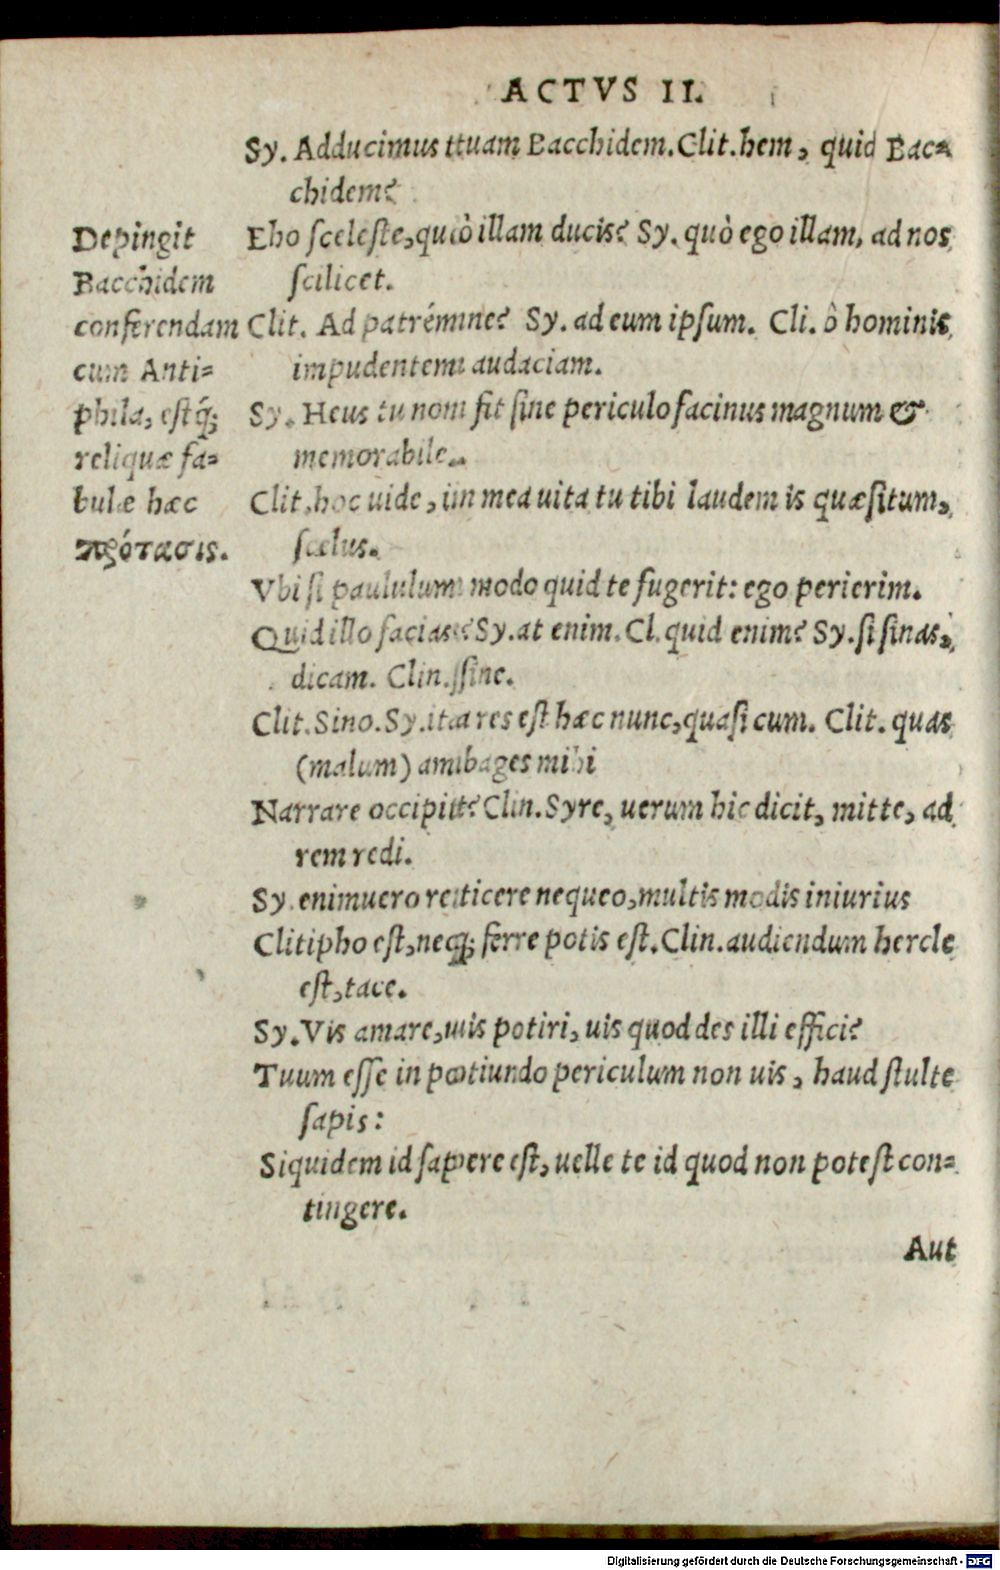 ACTVS II.
Sy. Adducimus tuam Bacchidem. Clit. hem, quid Bac=
chidem?
Eho sceleste, quò illam ducis? Sy. quò ego illam, ad nos
scilicet.
Clit. Ad patrémne? Sy. ad eum ipsum. Cli. ô hominis
impudentem audaciam.
Sy. Heus tu non fit sine periculo facinus magnum &
memorabile.
Clit. hoc uide, in mea uita tu tibi laudem is quæsitum,
scelus.
Vbi si paululum modo quid te fugerit: ego perierim.
Quid illo facias? Sy. at enim. Cl. quid enim? Sy. si sinas,
dicam. Clin. sine.
Clit. Sino. Sy. ita res est hæc nunc, quasi cum. Clit. quas
(malum) ambages mihi
Narrare occipit? Clin. Syre, uerum hic dicit, mitte, ad
rem redi.
Sy. enimuero reticere nequeo, multis modis iniurius
Clitipho est, neq; ferre potis est. Clin. audiendum hercle
est, tace.
Sy. Vis amare, uis potiri, uis quod des illi effici?
Tuum esse in potiundo periculum non uis, haud stulte
sapis:
Siquidem id sapere est, uelle te id quod non potest con=
tingere.
Aut
Depingit
Bacchidem
conferendam
cum Anti=
phila, estq́;
reliquæ fa=
bulæ hæc
πρότασις.
Digitalisierung gefördert durch die Deutsche Forschungsgemeinschaft - DFG